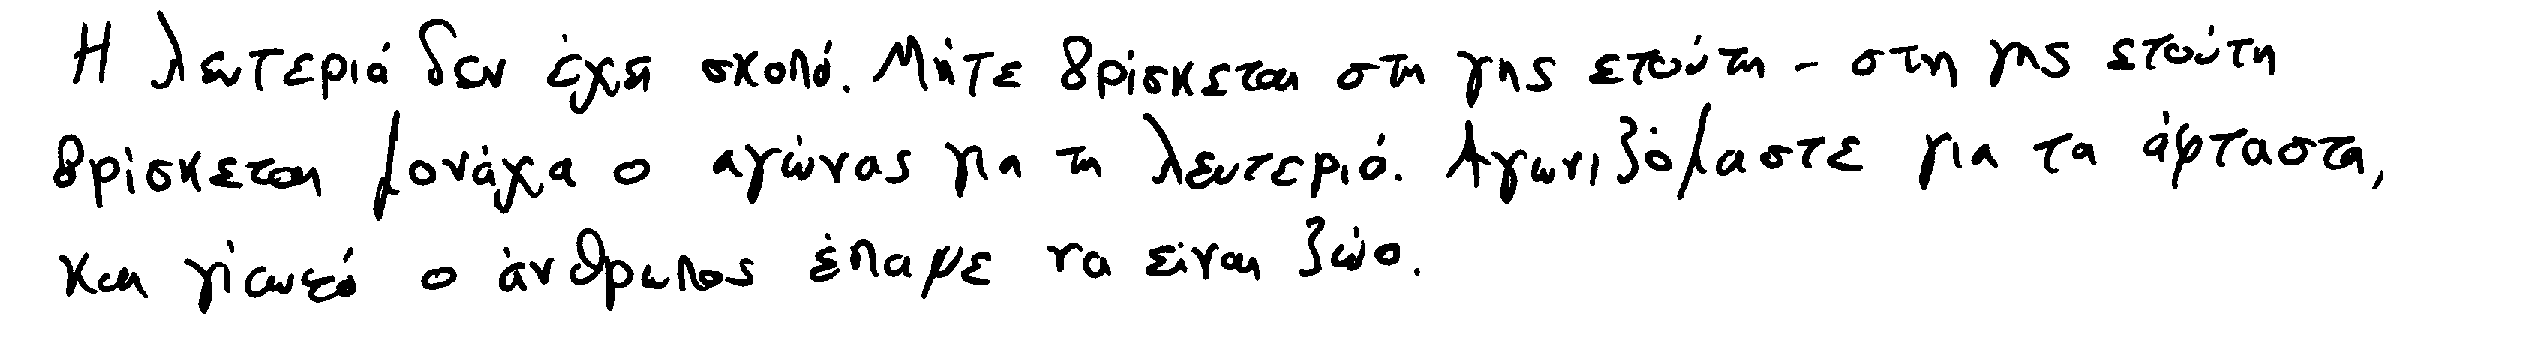 Η λευτεριά δεν έχει σκοπό. Μήτε βρίσκεται στη γης ετούτη - στη γης ετούτη
βρίσκεται μονάχα ο αγώνας για τη λευτεριά. Αγωνιζόμαστε για τα άφταστα,
και γι'αυτό ο άνθρωπος έπαψε να είναι ζώο.